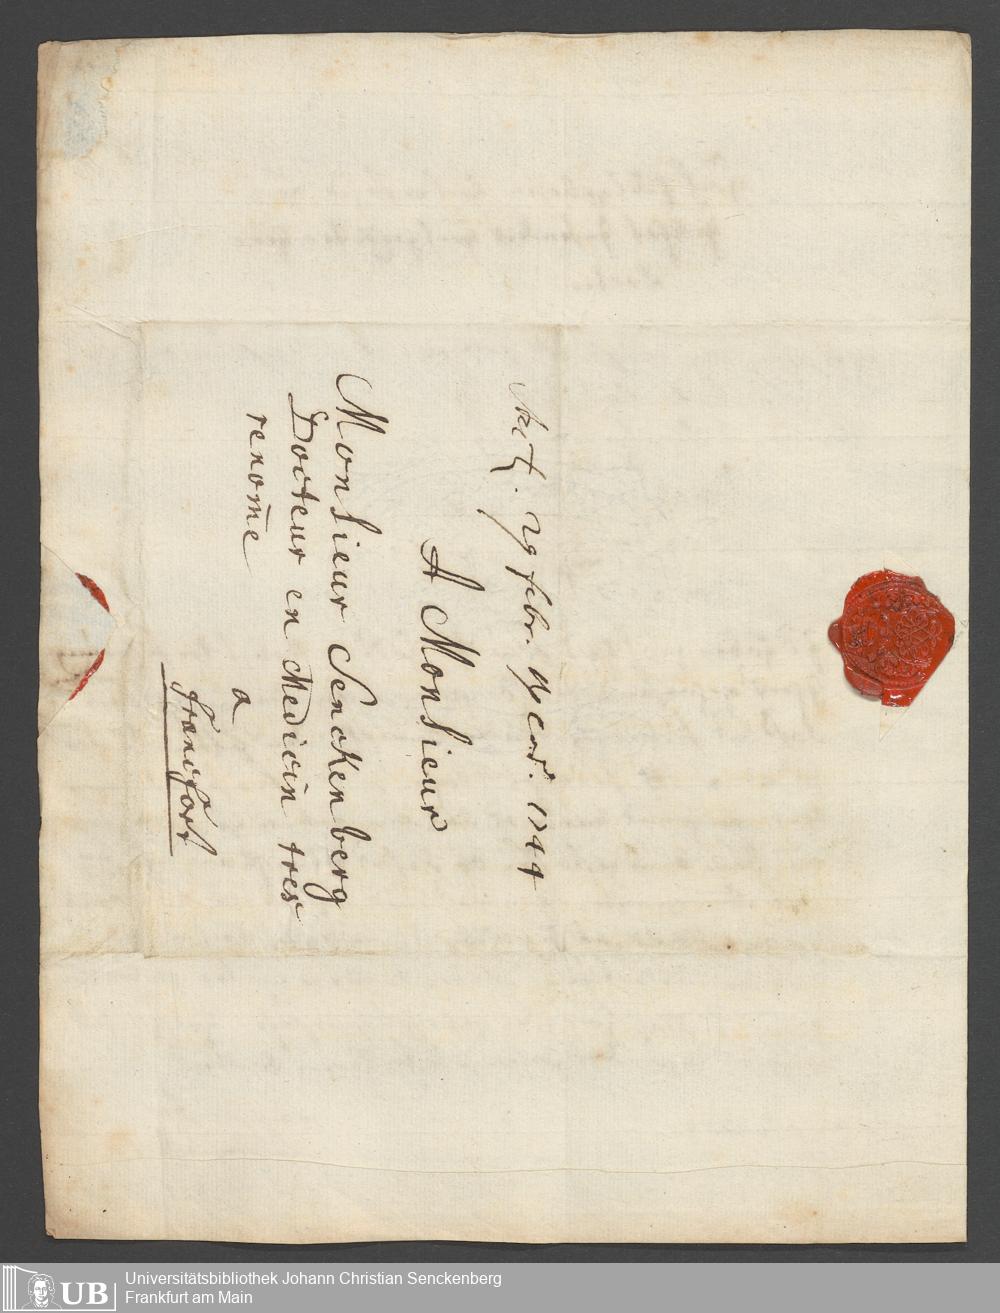 29 febr. 1744
A Monsieur
Monsieur Senckenberg
Docteur en Medicin tres
renom̄e
a
francfort
UB Universitätsbibliothek Johann Christian Senckenberg
Frankfurt am Main